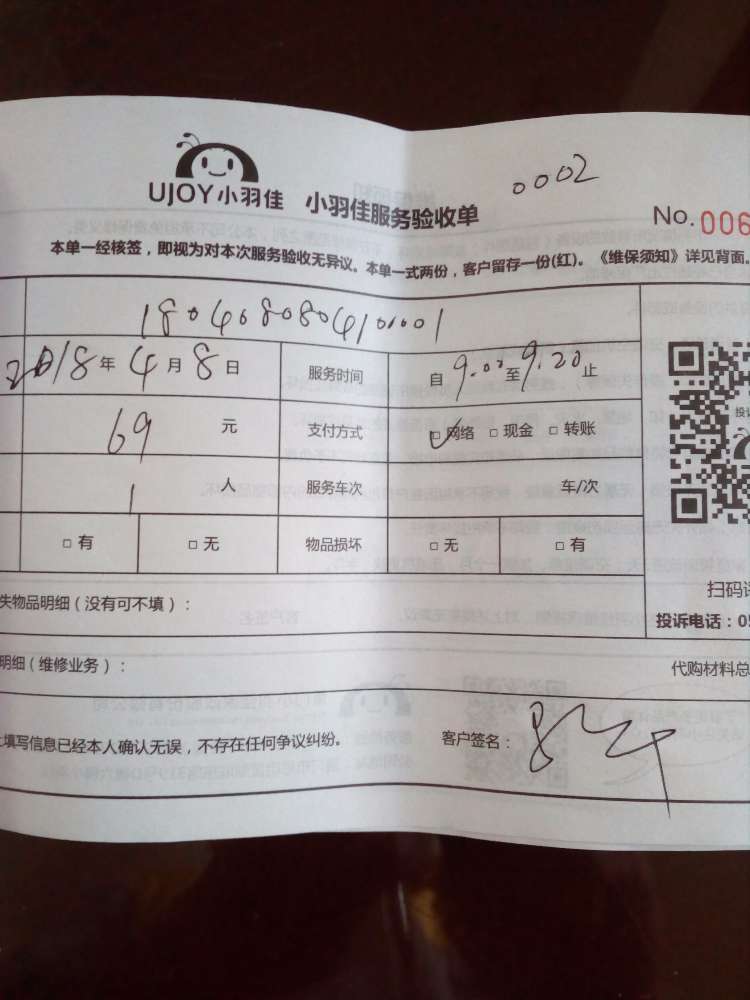 0002
UJOY小羽佳 小羽佳服务验收单
No. 006
本单一经核签，即视为对本次服务验收无异议。本单一式两份，客户留存一份(红)。《维保须知》详见背面。
180408080410001
2018年4月8日 服务时间 自9.00至9.20止
69 元 支付方式 □网络 □现金 □转账
1 人 服务车次 车/次
□有 □无 物品损坏 □无 □有
扫码
失物品明细（没有可不填）：
投诉电话：05
明细（维修业务）： 代购材料总
填写信息已经本人确认无误，不存在任何争议纠纷。 客户签名：